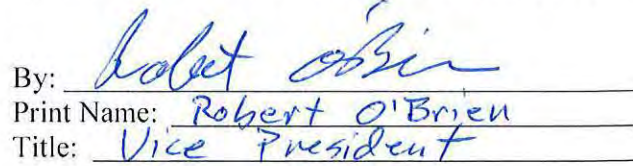 By: Robert O'Brien
Print Name: Robert O'Brien
Title: Vice President